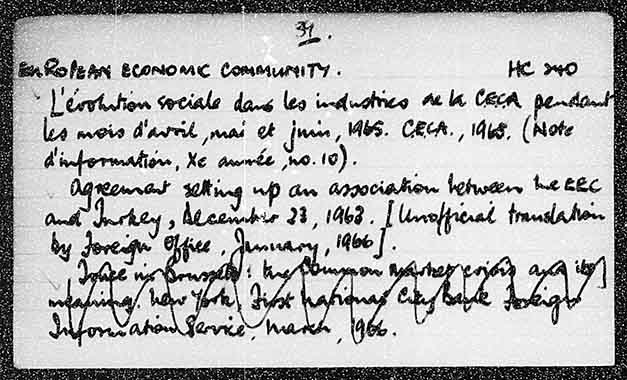 34.
EUROPEAN ECONOMIC COMMUNITY. HC 240
L'évolution sociale dans les industries de la CECA pendant
les mois d'avril, mai et juin, 1965. CECA., 1965. (Note
d'information, Xe année, no. 10).
Agreement setting up an association between the EEC
and Turkey, December 23, 1963. [Unofficial translation
by Foreign Office, January, 1966].
in Brussels: the Common Market crisis and its
meaning. New York. First National City Bank Foreign
Information Service, March, 1966.